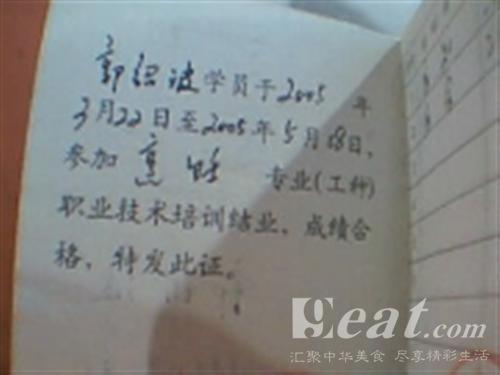 学员于2005年
3月22日至2005年5月18日,
参加烹 专业(工种)
职业技术培训结业、成绩合
格,特发此证。
9eat.com
汇聚中华美食 尽享精彩生活